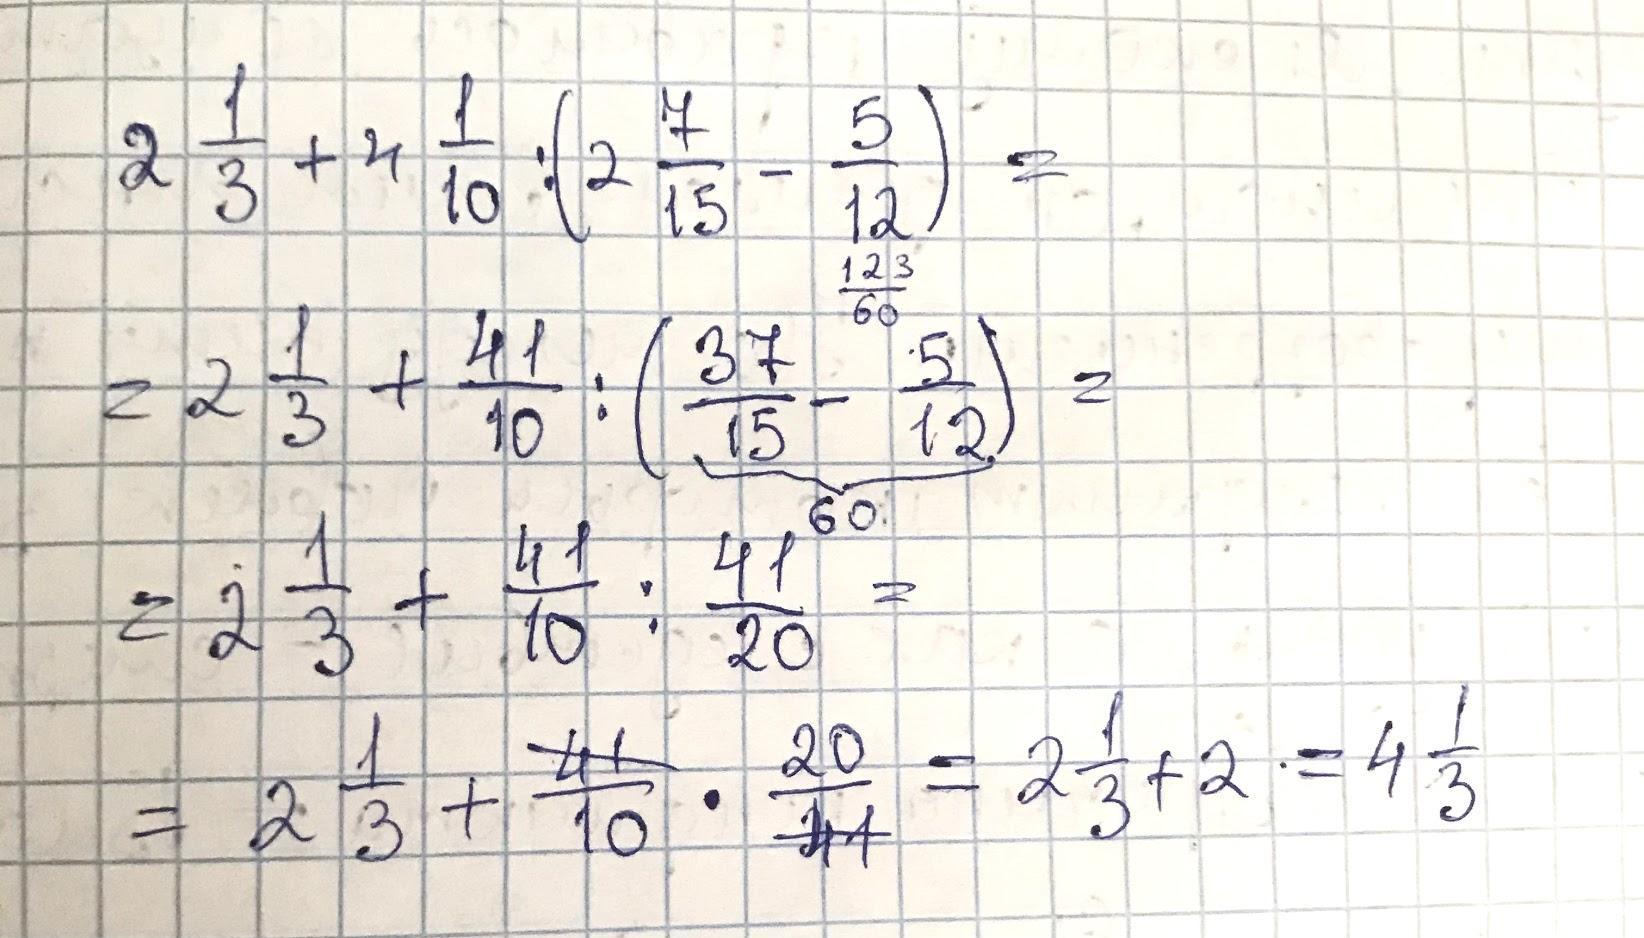 2 1/3 + 4 1/10 : (2 7/15 - 5/12) =
123/60
= 2 1/3 + 41/10 : (37/15 - 5/12) =
60
= 2 1/3 + 41/10 : 41/20 =
= 2 1/3 + 41/10 · 20/41 = 2 1/3 + 2 = 4 1/3